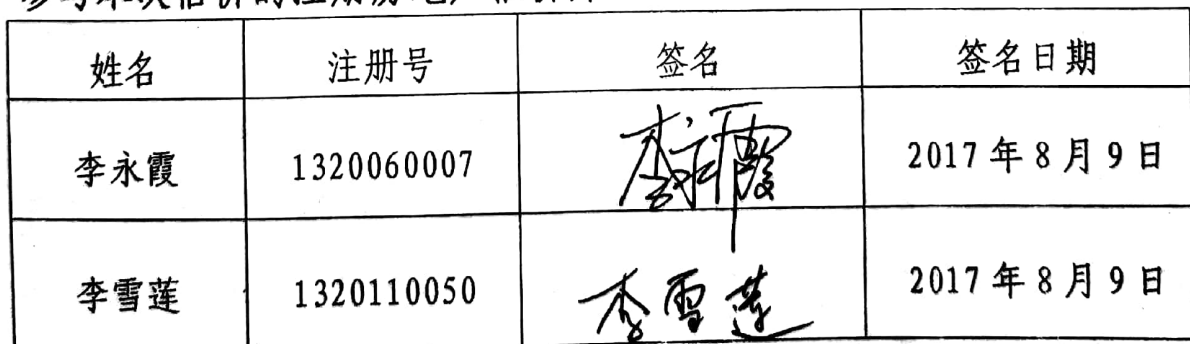 姓名 注册号 签名 签名日期
李永霞 1320060007 李永霞 2017年8月9日
李雪莲 1320110050 李雪莲 2017年8月9日